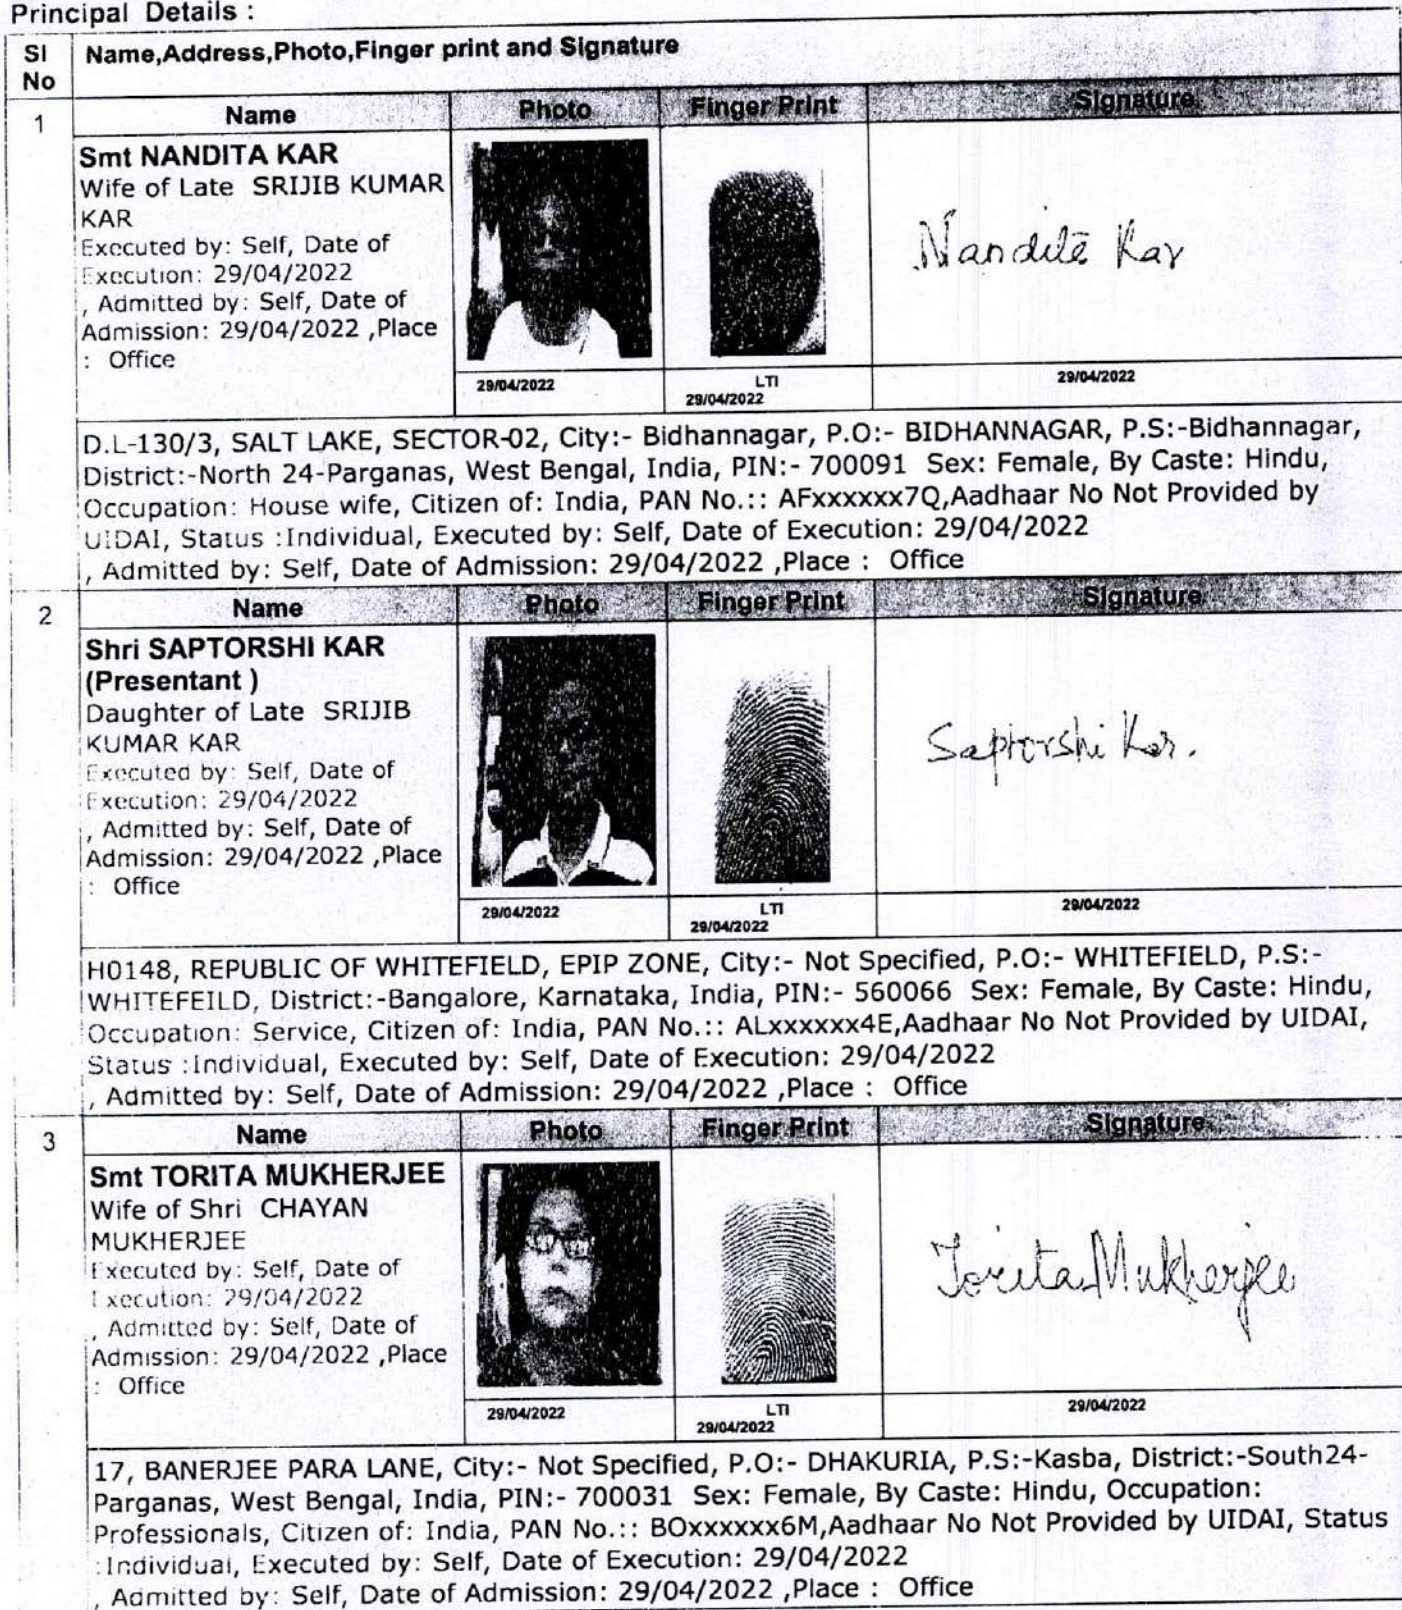 Principal Details :
Sl No
Name,Address,Photo,Finger print and Signature
1
Name Photo Finger Print Signature
Smt NANDITA KAR
Wife of Late SRIJIB KUMAR
KAR
Executed by: Self, Date of
Execution: 29/04/2022
, Admitted by: Self, Date of
Admission: 29/04/2022 ,Place
: Office
Nandita Kar
29/04/2022
LTI
29/04/2022
29/04/2022
D.L-130/3, SALT LAKE, SECTOR-02, City:- Bidhannagar, P.O:- BIDHANNAGAR, P.S:-Bidhannagar,
District:-North 24-Parganas, West Bengal, India, PIN:- 700091 Sex: Female, By Caste: Hindu,
Occupation: House wife, Citizen of: India, PAN No.:: AFxxxxxx7Q,Aadhaar No Not Provided by
UIDAI, Status :Individual, Executed by: Self, Date of Execution: 29/04/2022
, Admitted by: Self, Date of Admission: 29/04/2022 ,Place : Office
2
Name Photo Finger Print Signature
Shri SAPTORSHI KAR
(Presentant )
Daughter of Late SRIJIB
KUMAR KAR
Executed by: Self, Date of
Execution: 29/04/2022
, Admitted by: Self, Date of
Admission: 29/04/2022 ,Place
: Office
Saptorshi Kar.
29/04/2022
LTI
29/04/2022
29/04/2022
H0148, REPUBLIC OF WHITEFIELD, EPIP ZONE, City:- Not Specified, P.O:- WHITEFIELD, P.S:-
WHITEFEILD, District:-Bangalore, Karnataka, India, PIN:- 560066 Sex: Female, By Caste: Hindu,
Occupation: Service, Citizen of: India, PAN No.:: ALxxxxxx4E,Aadhaar No Not Provided by UIDAI,
Status :Individual, Executed by: Self, Date of Execution: 29/04/2022
, Admitted by: Self, Date of Admission: 29/04/2022 ,Place : Office
3
Name Photo Finger Print Signature
Smt TORITA MUKHERJEE
Wife of Shri CHAYAN
MUKHERJEE
Executed by: Self, Date of
Execution: 29/04/2022
, Admitted by: Self, Date of
Admission: 29/04/2022 ,Place
: Office
Torita Mukherjee
29/04/2022
LTI
29/04/2022
29/04/2022
17, BANERJEE PARA LANE, City:- Not Specified, P.O:- DHAKURIA, P.S:-Kasba, District:-South24-
Parganas, West Bengal, India, PIN:- 700031 Sex: Female, By Caste: Hindu, Occupation:
Professionals, Citizen of: India, PAN No.:: BOxxxxxx6M,Aadhaar No Not Provided by UIDAI, Status
:Individual, Executed by: Self, Date of Execution: 29/04/2022
, Admitted by: Self, Date of Admission: 29/04/2022 ,Place : Office